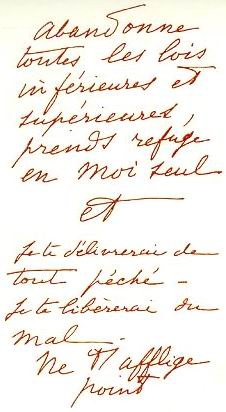 Abandonne
toutes les lois
inférieures et
supérieures,
prends refuge
en Moi seul
et
Je te délivrerai de
tout péché -
Je te libèrerai du
mal.
Ne t'afflige
point